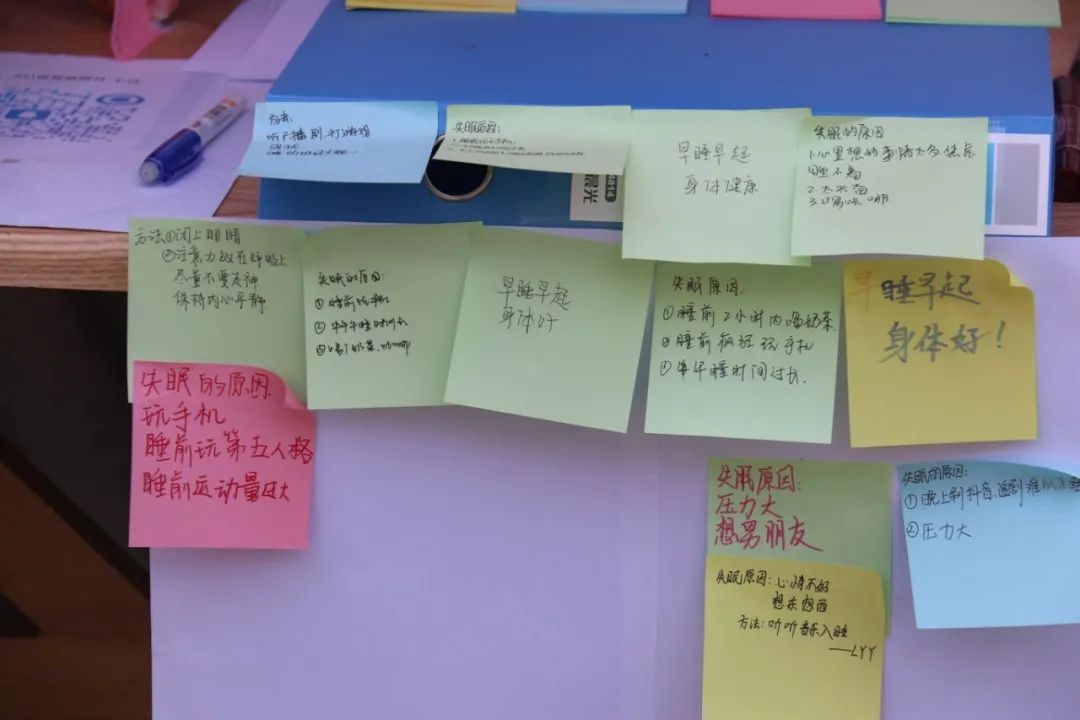 方法:
听广播剧,打游戏
失眠原因:
早睡早起
身体健康
失眠的原因
1.心里想的事情太多焦虑
睡不着
2.太兴奋
3.
方法①闭上眼睛
②注意力放在呼吸上
尽量不要走神
保持内心平静
失眠的原因:
①睡前玩手机
②中午睡时间长
③喝了奶茶、咖啡
早睡早起
身体好
失眠原因:
①睡前2小时内喝奶茶
②睡前疯狂玩手机
③中午睡时间过长.
早睡早起
身体好!
失眠的原因
玩手机
睡前玩第五人格
睡前运动量过大
失眠原因:
压力大
想男朋友
失眠的原因:
①晚上刷抖音、追剧难以入睡
②压力大
失眠原因:心情不好
想东想西
方法:听听音乐入睡
——LYY
晨光